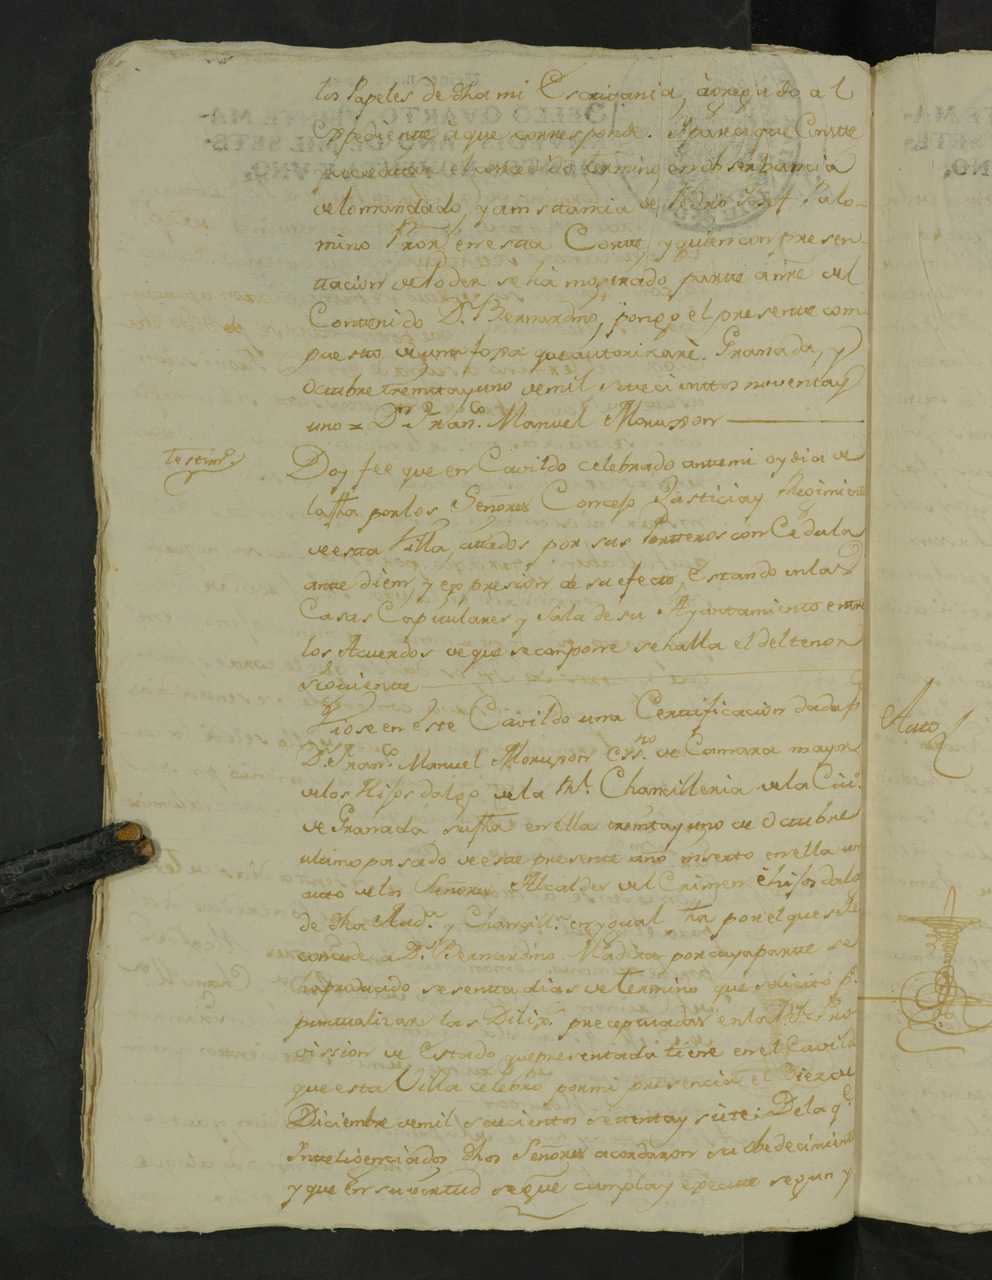 los Papeles de dha mi Escrivania, agregado al
Expediente aque corresponde. Y para que Conste
el concedido termino en observancia
de lo mandado, y a instancia de Pedro Josef Palo-
mino Pror. en esta Corte, y quien con presen-
tacion de Poder se ha mostrado parte a nre. del
Contenido Dn. Bernardino, pongo el presente com-
puesto de una foxa que autorizarè. Granada, y
Octubre treinta y uno de mil setecientos noventa y
uno = Dn. Franco. Manuel Moruzon
Testimo.
Doy fee que en Cavildo celebrado ante mi oy dia de
la fha por los Señores Concejo Justicia y Regimiento
de esta Villa, citados por sus Porteros con Cedula
ante diem, y expresion de su efecto, Estando en las
Casas Capitulares y Sala de su Ayuntamiento entre
los Acuerdos de que se compone se halla el del tenor
siguiente
Viose en este Cavildo una Certificacion dada pr.
Dn. Franco. Manuel Moruzon Essno. de Camara mayor
de los Hijos dalgo de la Rl. Chancilleria de la Ciud.
de Granada su fha en ella treinta y uno de Octubre
ultimo pasado de este presente año inserto en ella un
auto de los Señores Alcaldes del Crimen è hijos dalgo
de dha Audª. y Chancillª. en ygual fha por el que se le
concede a Dn. Bernardino por cuya parte se
ha producido sesenta dias de termino que solicitó pª.
puntualizar las Dilixs. preceptuadas en la Rl. Pro
vission de Estado que presentada tiene en el Cavildo
que esta Villa celebró por mi presencia el Diez de
Diciembre de mil setecientos setenta y siete: De la qe.
Inteligenciados dhos Señores acordaron su obedecimiento
y que en su virtud se gue. cumpla y execute segun y
Auto